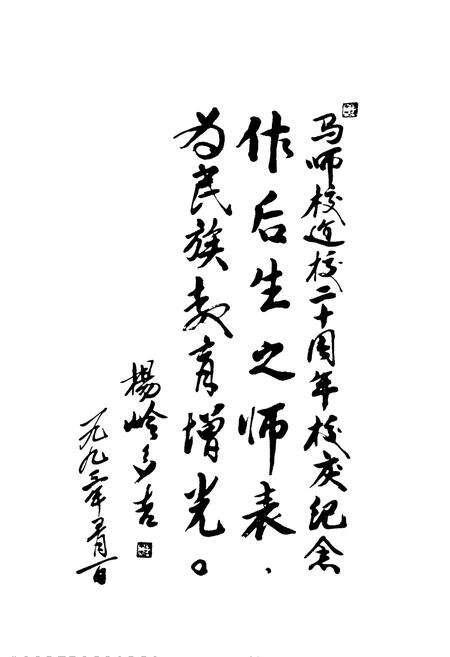 马师校建校二十周年校庆纪念
作后生之师表、
为民族教育增光。
楊岭多吉
一九九三年月一日